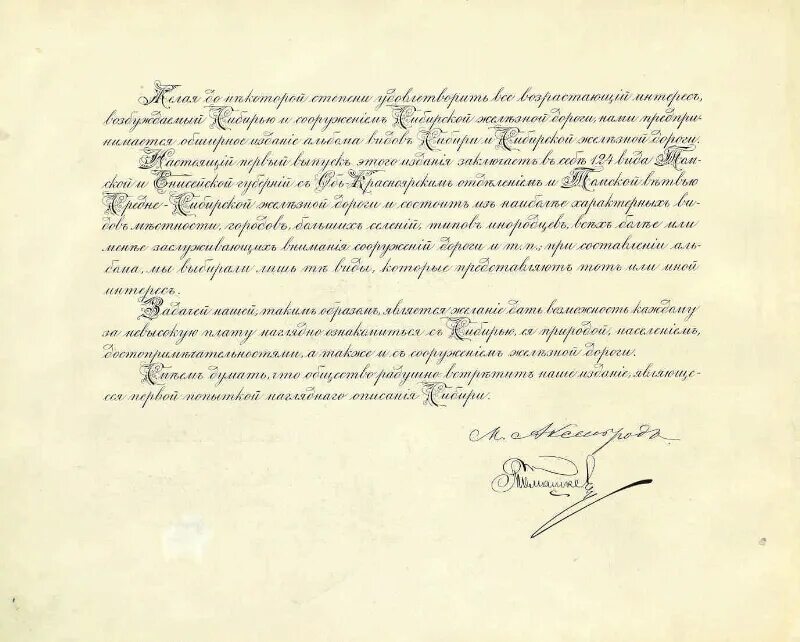 Желая до нѣкоторой степени удовлетворить все возрастающій интересъ,
возбуждаемый Сибирью и сооруженіемъ Сибирской желѣзной дороги, нами предпри-
нимается обширное изданіе альбома видовъ Сибири и Сибирской желѣзной дороги.
Настоящій первый выпускъ этого изданія заключаетъ въ себѣ 124 вида Том-
ской и Енисейской губерній съ Обь-Красноярскимъ отдѣленіемъ и Томской вѣтвью
Средне-Сибирской желѣзной дороги и состоитъ изъ наиболѣе характерныхъ ви-
довъ мѣстности, городовъ, большихъ селеній, типовъ инородцевъ, всѣхъ болѣе или
менѣе заслуживающихъ вниманія сооруженій дороги и т.п.; при составленіи аль-
бома, мы выбирали лишь тѣ виды, которые представляютъ тотъ или иной
интересъ.
Задачей нашей, такимъ образомъ, является желаніе дать возможность каждому
за невысокую плату наглядно ознакомиться съ Сибирью, ея природой, населеніемъ,
достопримѣчательностями, а также и съ сооруженіемъ желѣзной дороги.
Смѣемъ думать, что общество радушно встрѣтитъ наше изданіе, являюще-
еся первой попыткой нагляднаго описанія Сибири.
М. Аксельродъ